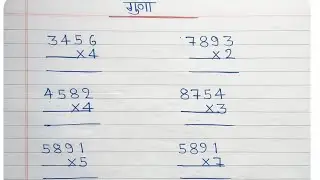 गुणा
3456 7893
×4 ×2
4582 8754
×4 ×3
5891 5891
×5 ×7